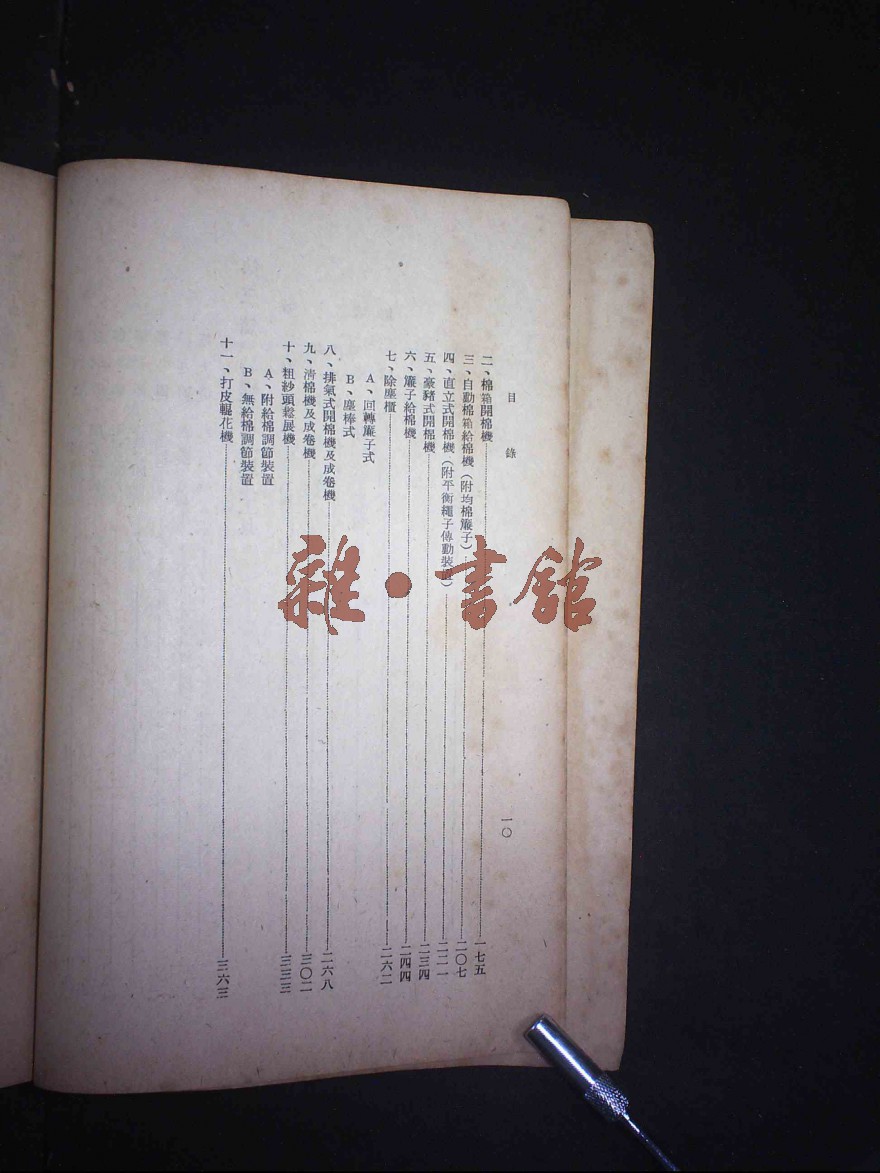 目錄
一〇
二、棉箱開棉機 一七五
三、自動棉箱給棉機（附均棉簾子） 二〇七
四、直立式開棉機（附平衡繩子傳動裝置） 二二一
五、豪豬式開棉機 二三四
六、簾子給棉機 二四四
七、除塵櫃 二六二
A、回轉簾子式
B、塵棒式
八、排氣式開棉機及成卷機 二六八
九、清棉機及成卷機 三〇二
十、粗紗頭鬆展機 三三三
A、附給棉調節裝置
B、無給棉調節裝置
十一、打皮輥花機 三六三
雜·書館